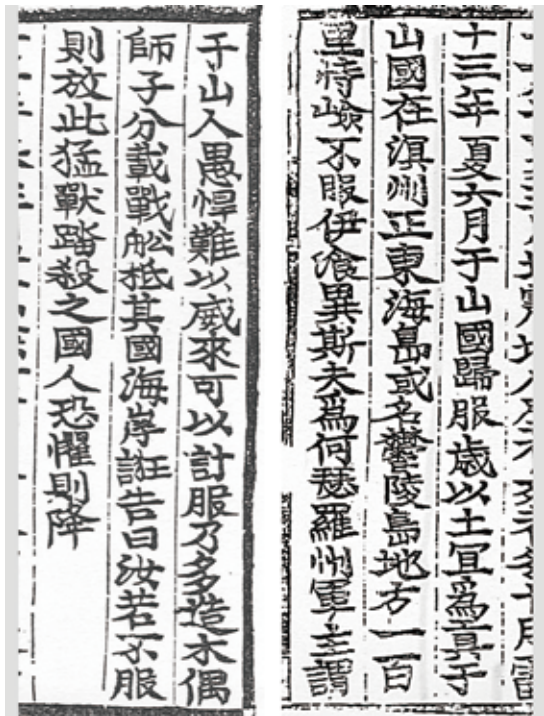 十三年夏六月于山國歸服歳以土宜爲貢于
山國在溟州正東海島或名鬱陵島地方一百
里恃嶮不服伊飡異斯夫爲何瑟羅州軍主謂
于山人愚悍難以威來可以計服乃多造木偶
師子分載戰舩抵其國海岸誑告曰汝若不服
則放此猛獸踏殺之國人恐懼則降